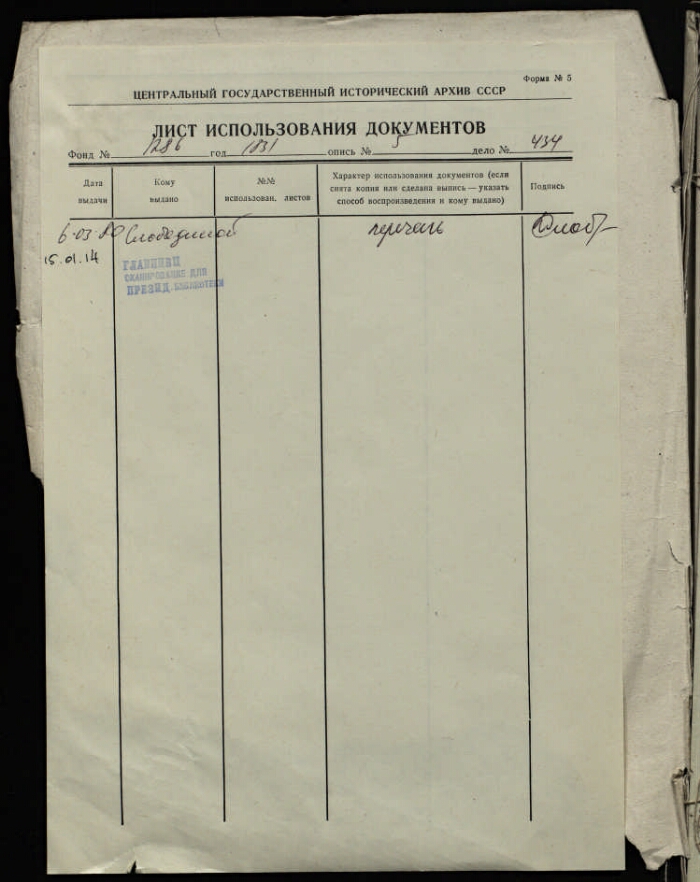 Форма № 5
ЦЕНТРАЛЬНЫЙ ГОСУДАРСТВЕННЫЙ ИСТОРИЧЕСКИЙ АРХИВ СССР
ЛИСТ ИСПОЛЬЗОВАНИЯ ДОКУМЕНТОВ
Фонд № 1286 год 1831 опись № 5 дело № 434
Дата выдачи
Кому выдано
№№ использован. листов
Характер использования документов (если
снята копия или сделана выпись — указать
способ воспроизведения и кому выдано)
Подпись
6.03
15.01.14
ГЛАВНИВЦ
СКАНИРОВАНИЕ ДЛЯ
ПРЕЗИД. БИБЛИОТЕКИ